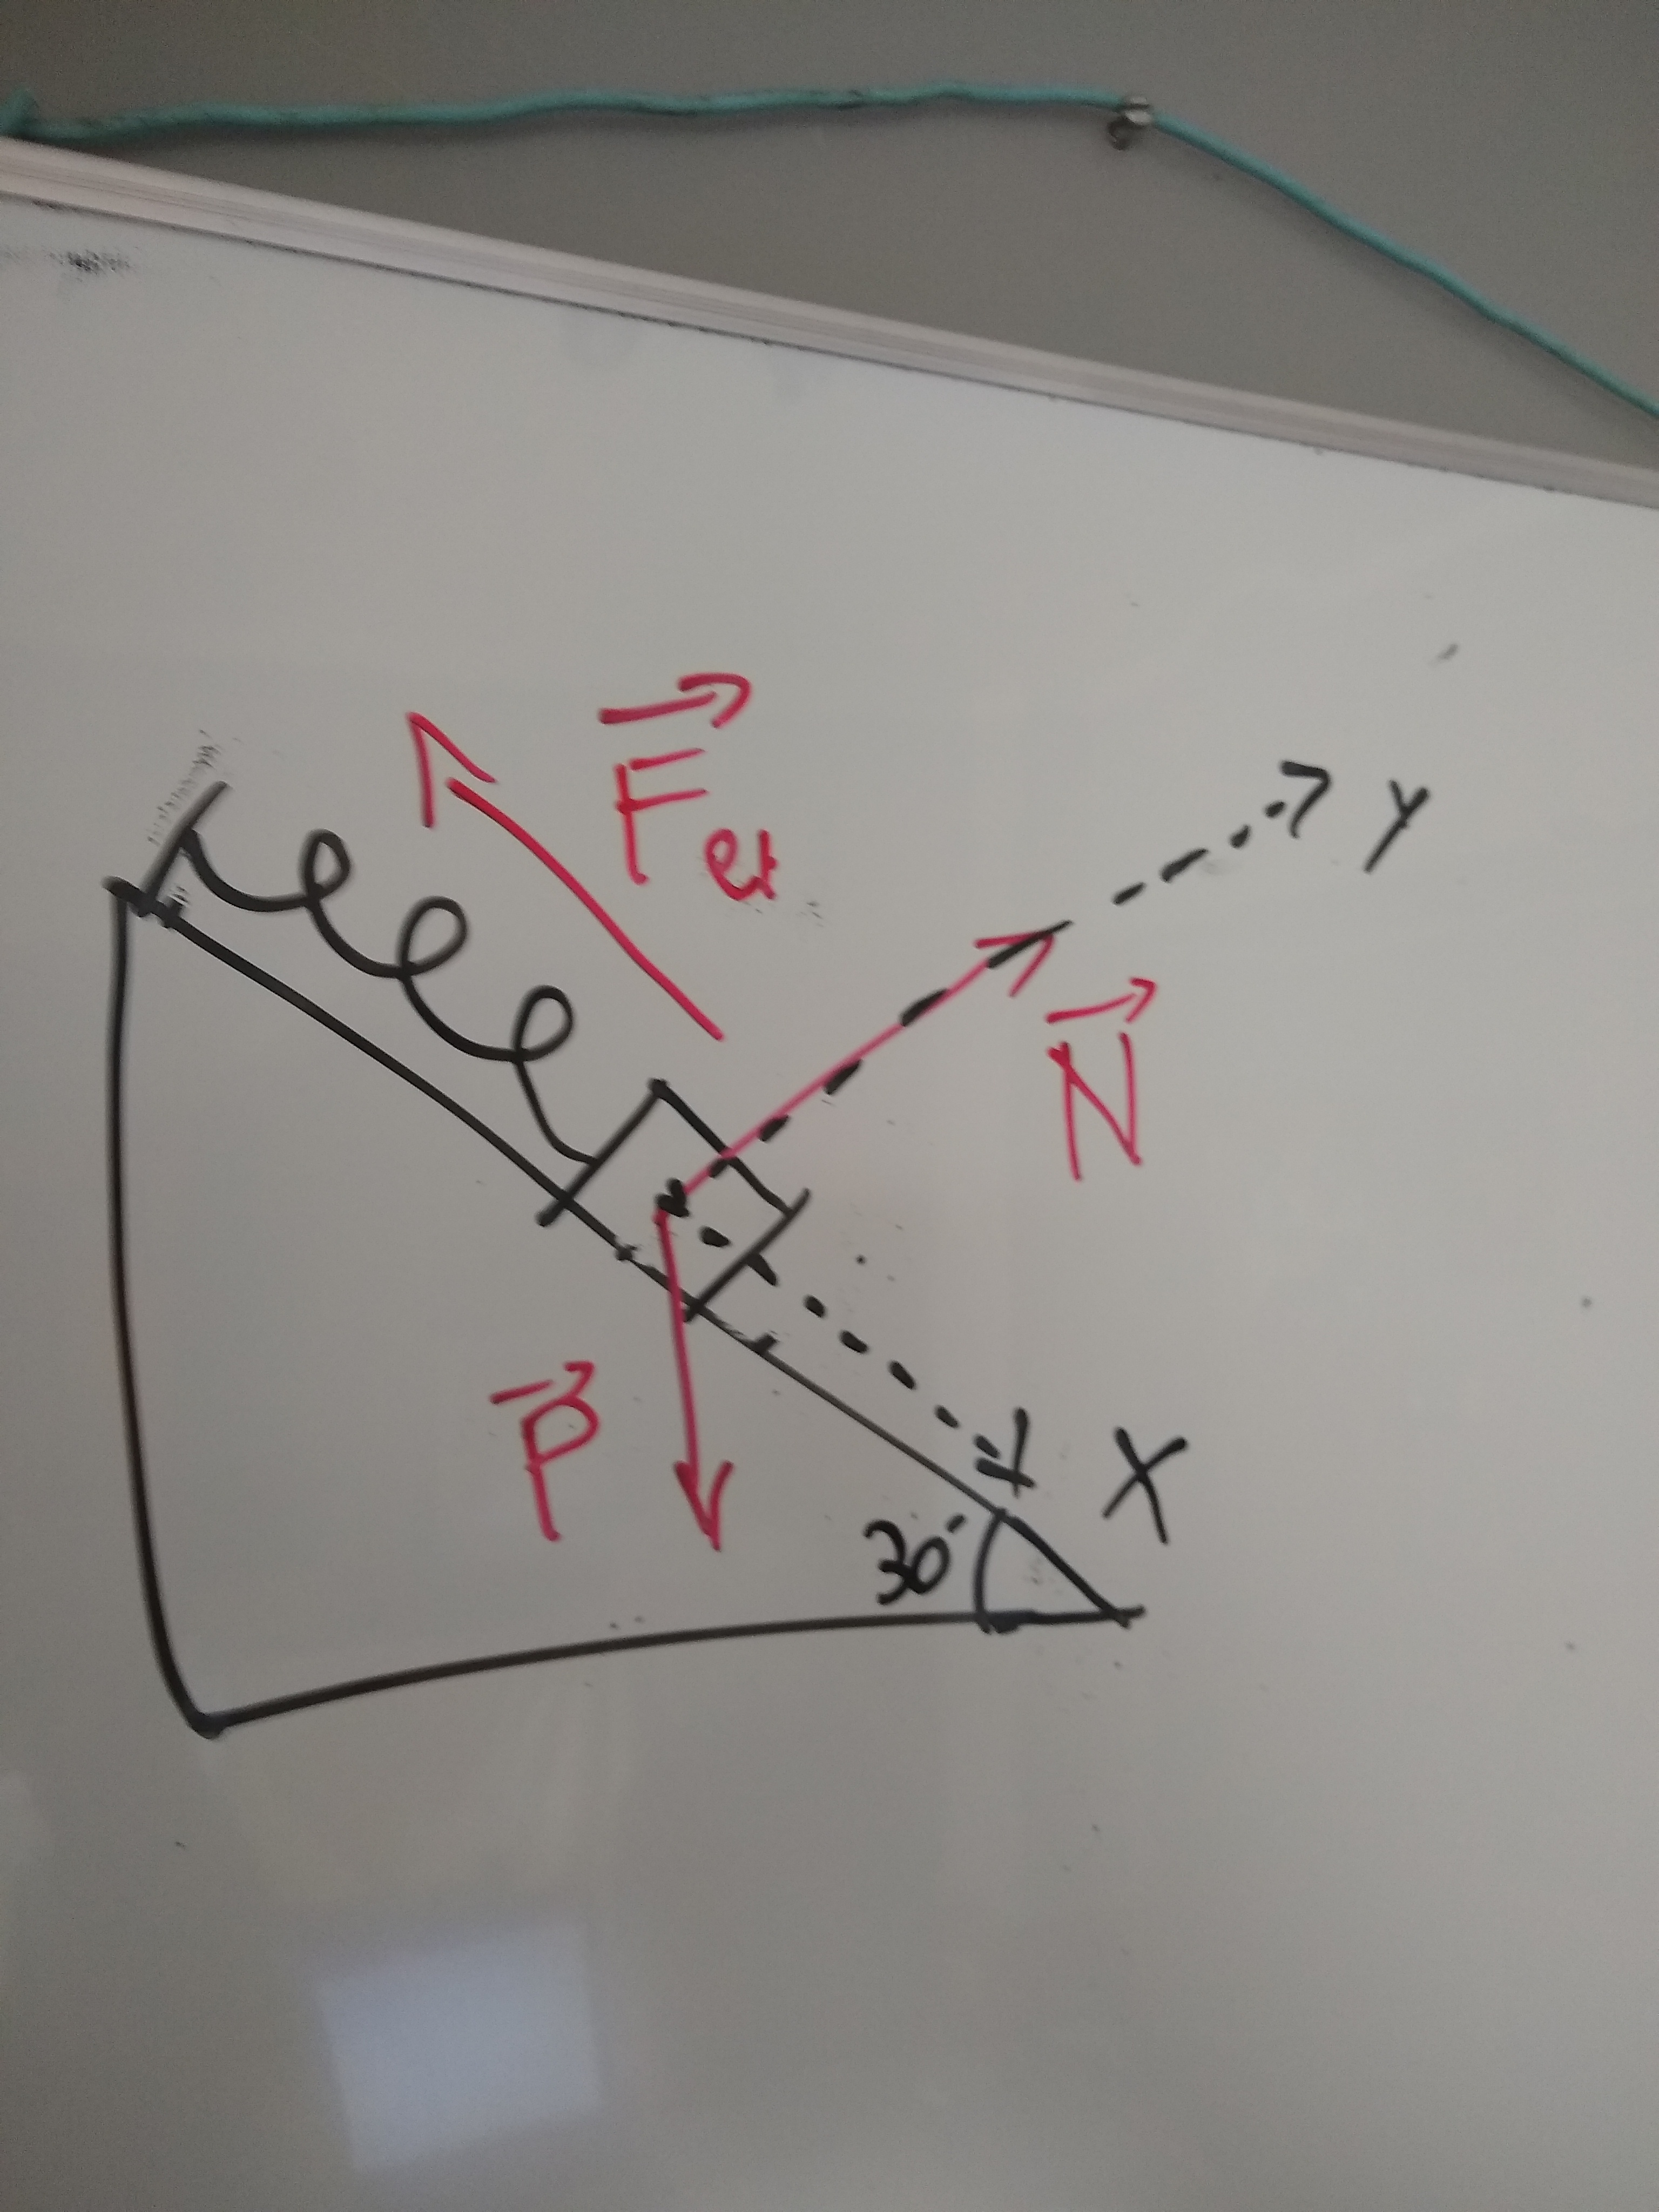 F el
y
N
P
X
30°